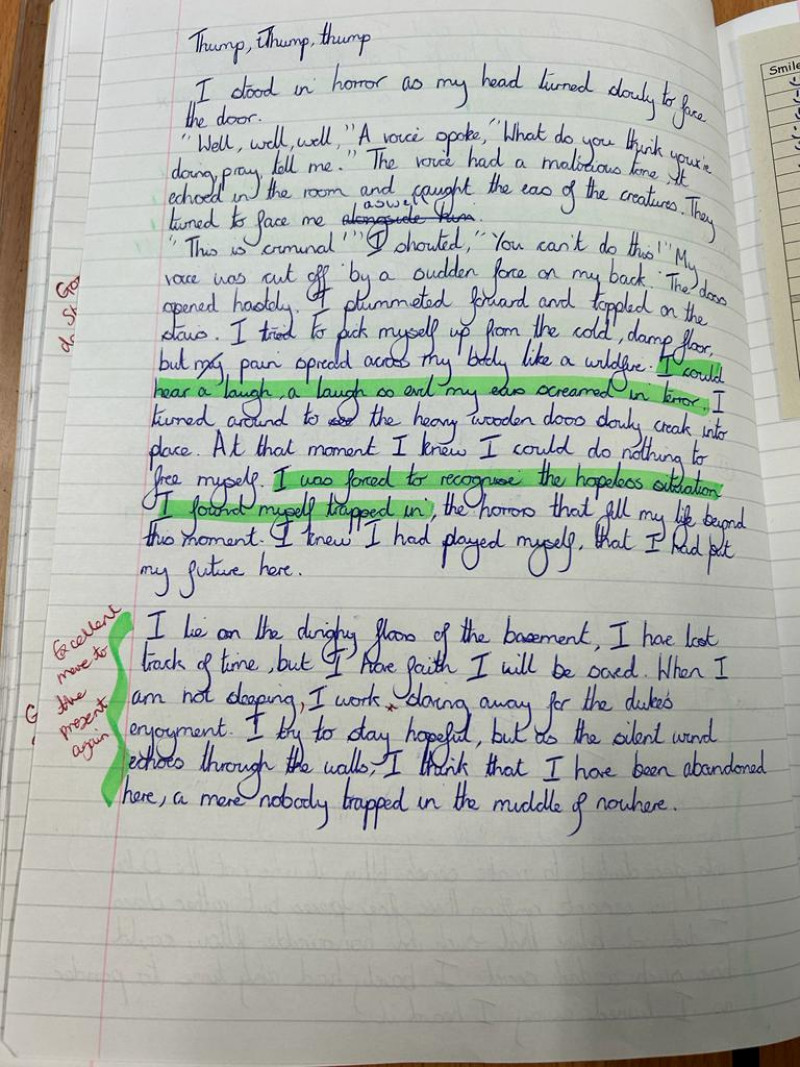 Thump, Thump, thump
Smile
I stood in horror as my head turned slowly to face
the door.
"Well, well, well," A voice spoke, "What do you think you're
doing, pray, tell me." The voice had a malicious tone, it
echoed in the room and caught the ears of the creatures. They
aswell
turned to face me alongside him.
"This is criminal!" I shouted, "You can't do this!" My
voice was cut off by a sudden force on my back. The doors
opened hastily. I plummeted forward and toppled on the
stairs. I tried to pick myself up from the cold, damp floor,
but my pain spread across my body like a wildfire. I could
hear a laugh, a laugh so evil my ears screamed in terror. I
turned around to see the heavy wooden doors slowly creak into
place. At that moment I knew I could do nothing to
free myself. I was forced to recognise the hopeless situation
I found myself trapped in, the horrors that fill my life beyond
this moment. I knew I had played myself, that I had put
my future here.
I lie on the dinghy floors of the basement, I have lost
track of time, but I have faith I will be saved. When I
am not sleeping, I work, slaving away for the duke's
enjoyment. I try to stay hopeful, but as the silent wind
echoes through the walls, I think that I have been abandoned
here, a mere nobody trapped in the middle of nowhere.
Excellent
move to
the
present
again
G